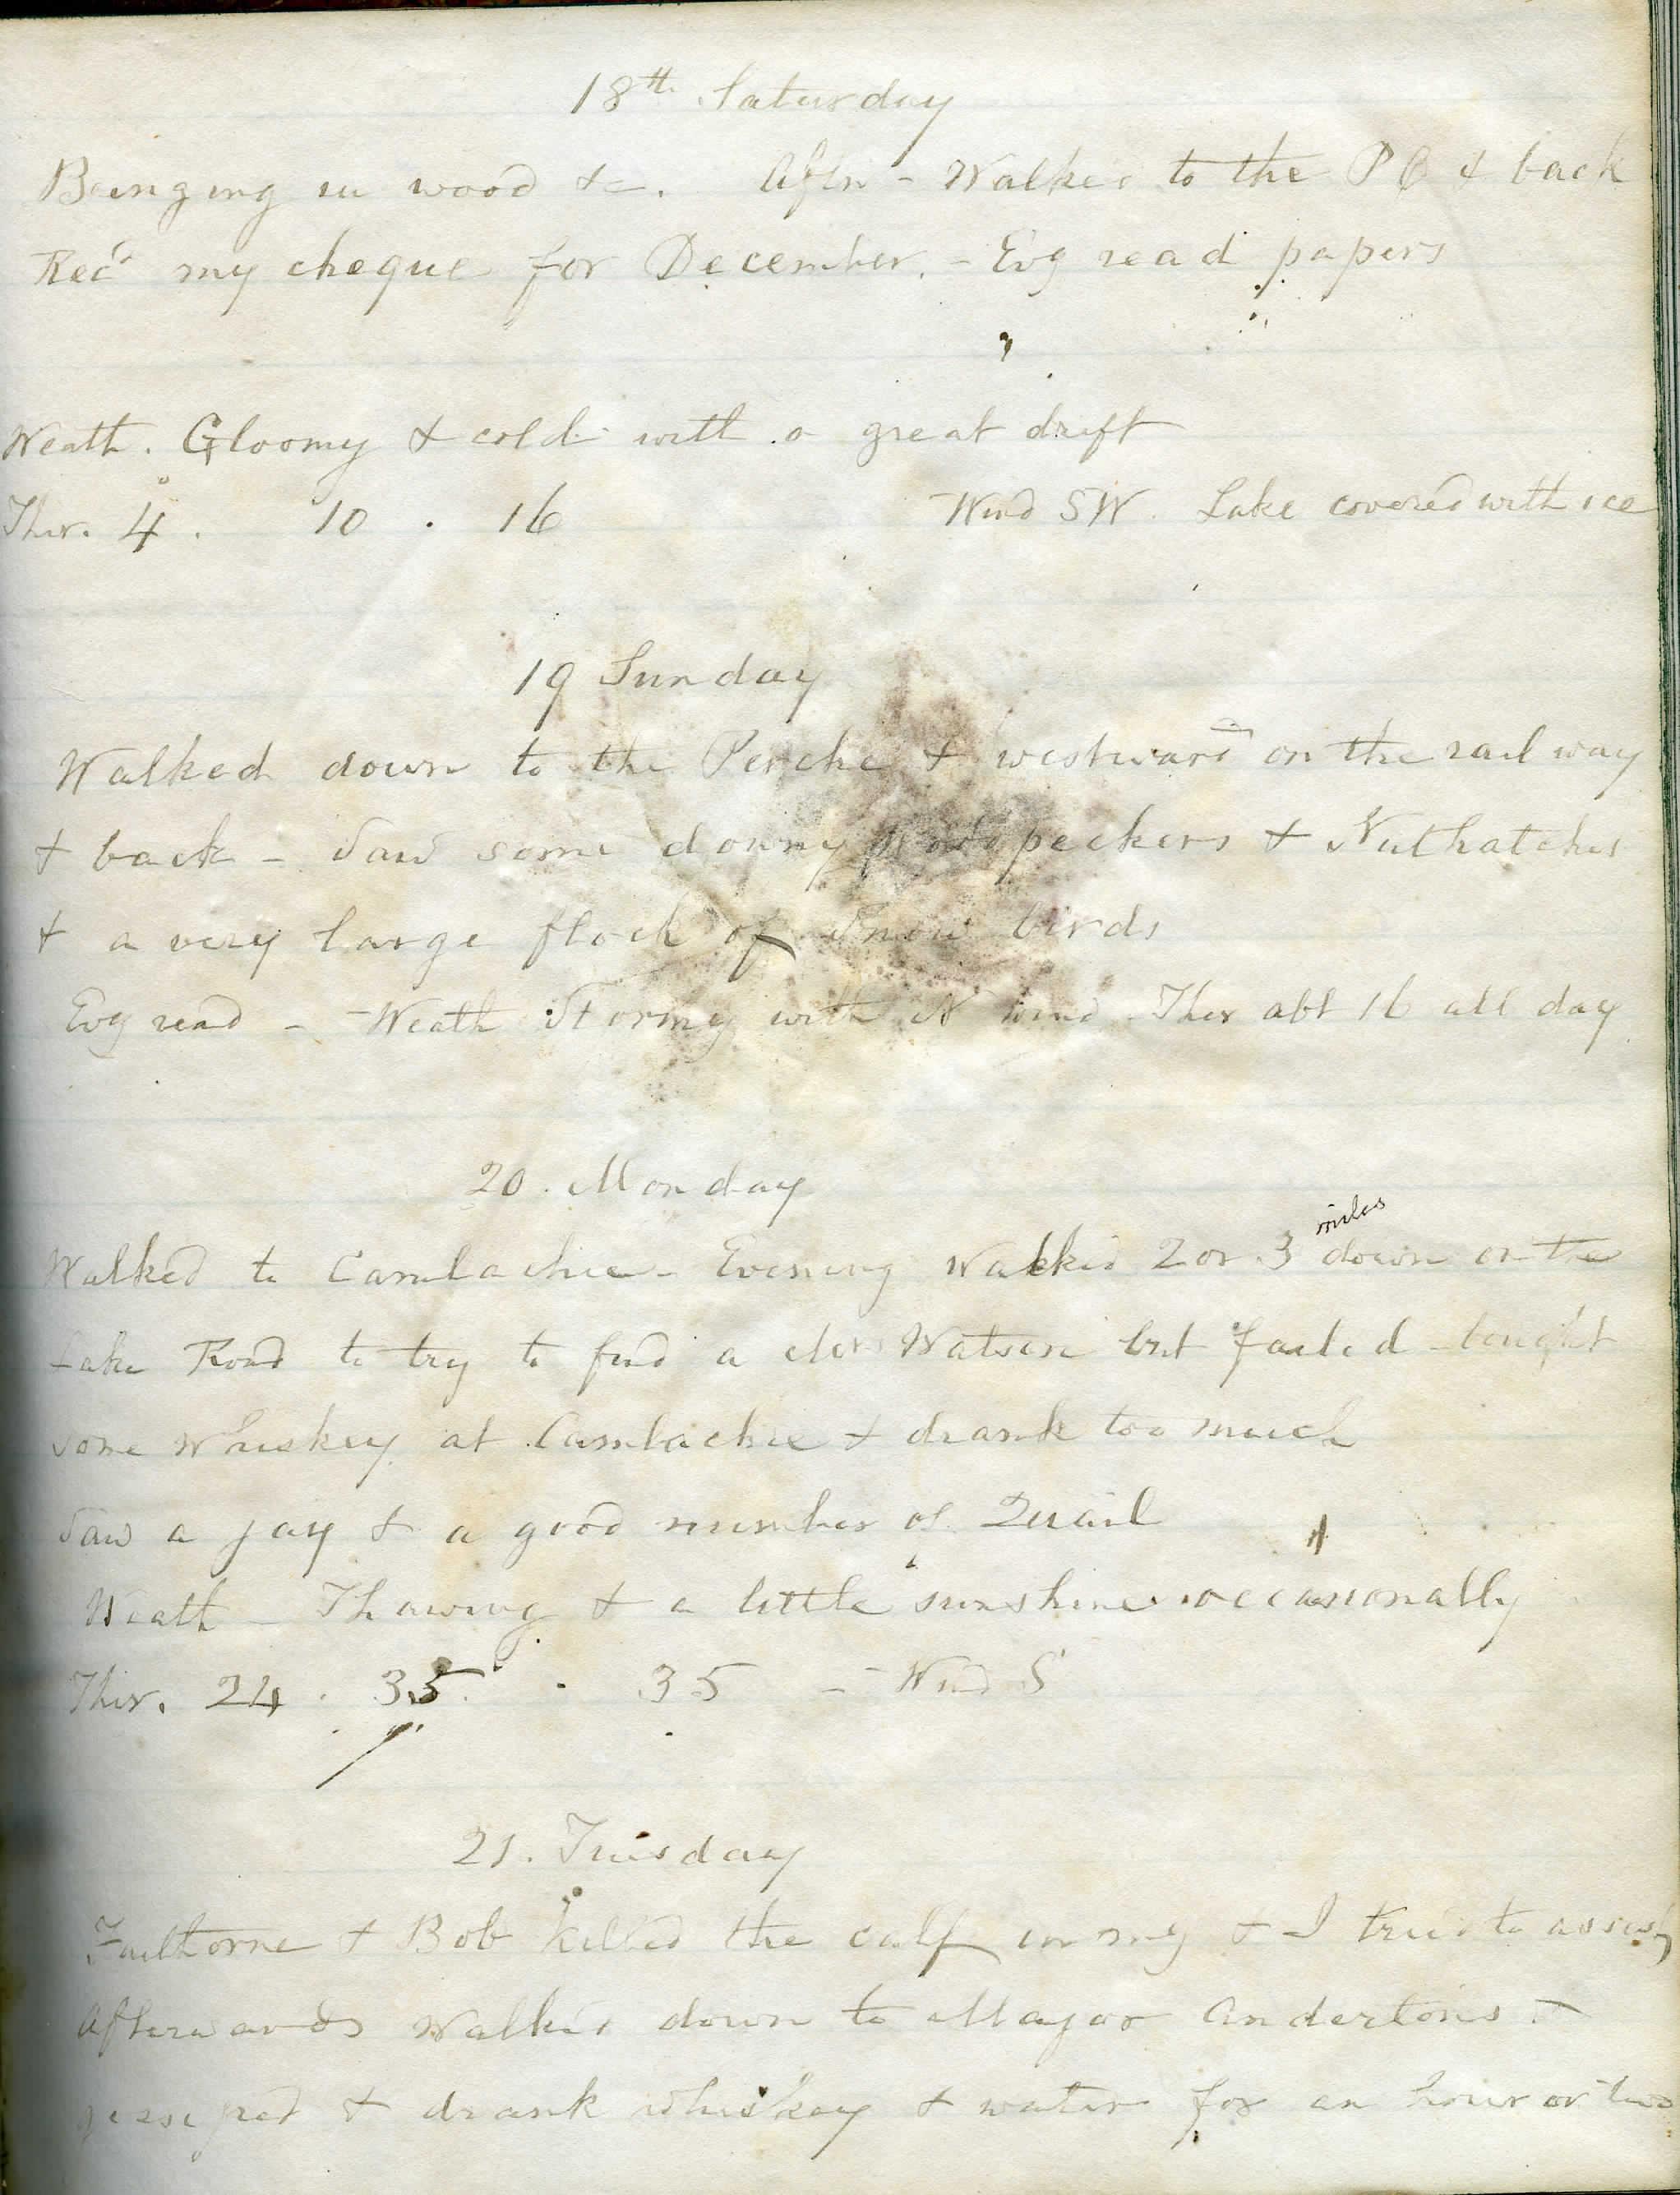 18th Saturday
Bringing in wood &c. Aftn - Walked to the P O & back
Recd my cheque for December. - Evg read papers
Weath. Gloomy & cold with a great drift
Ther. 4. 10 . 16 Wind SW. Lake covered with ice
19 Sunday
Walked down to the Perche & westward on the railway
& back - Saw some downy Woodpeckers & Nuthatches
& a very large flock of Snow birds
Evg read - - Weath Stormy with N wind Ther abt 16 all day
20. Monday
Walked to Camlachie - Evening Walked 2 or 3 miles down on the
Lake Road to try to find a Watson but failed - bought
some Whiskey at Camlachie & drank too much
Saw a jay & a good number of Quail
Weath - Thawing & a little sunshine occasionally
Ther. 24 . 35 . 35 - Wind S
21. Tuesday
Faulthorne & Bob killed the calf in mg & I tried to assist
Afterwards Walked down to Major Andertons -
gossiped & drank whiskey & water for an hour or two